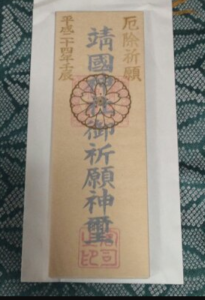 厄除祈願
靖國神社御祈願神璽
平成二十四年壬辰